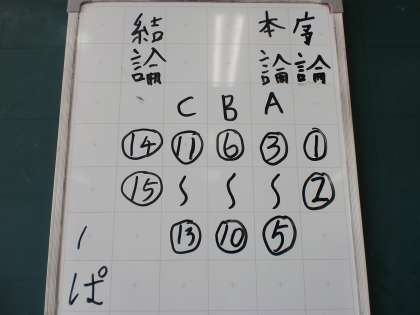 序論 ① ②
本論
A ③ 〜 ⑤
B ⑥ 〜 ⑩
C ⑪ 〜 ⑬
結論 ⑭ ⑮
ぱ